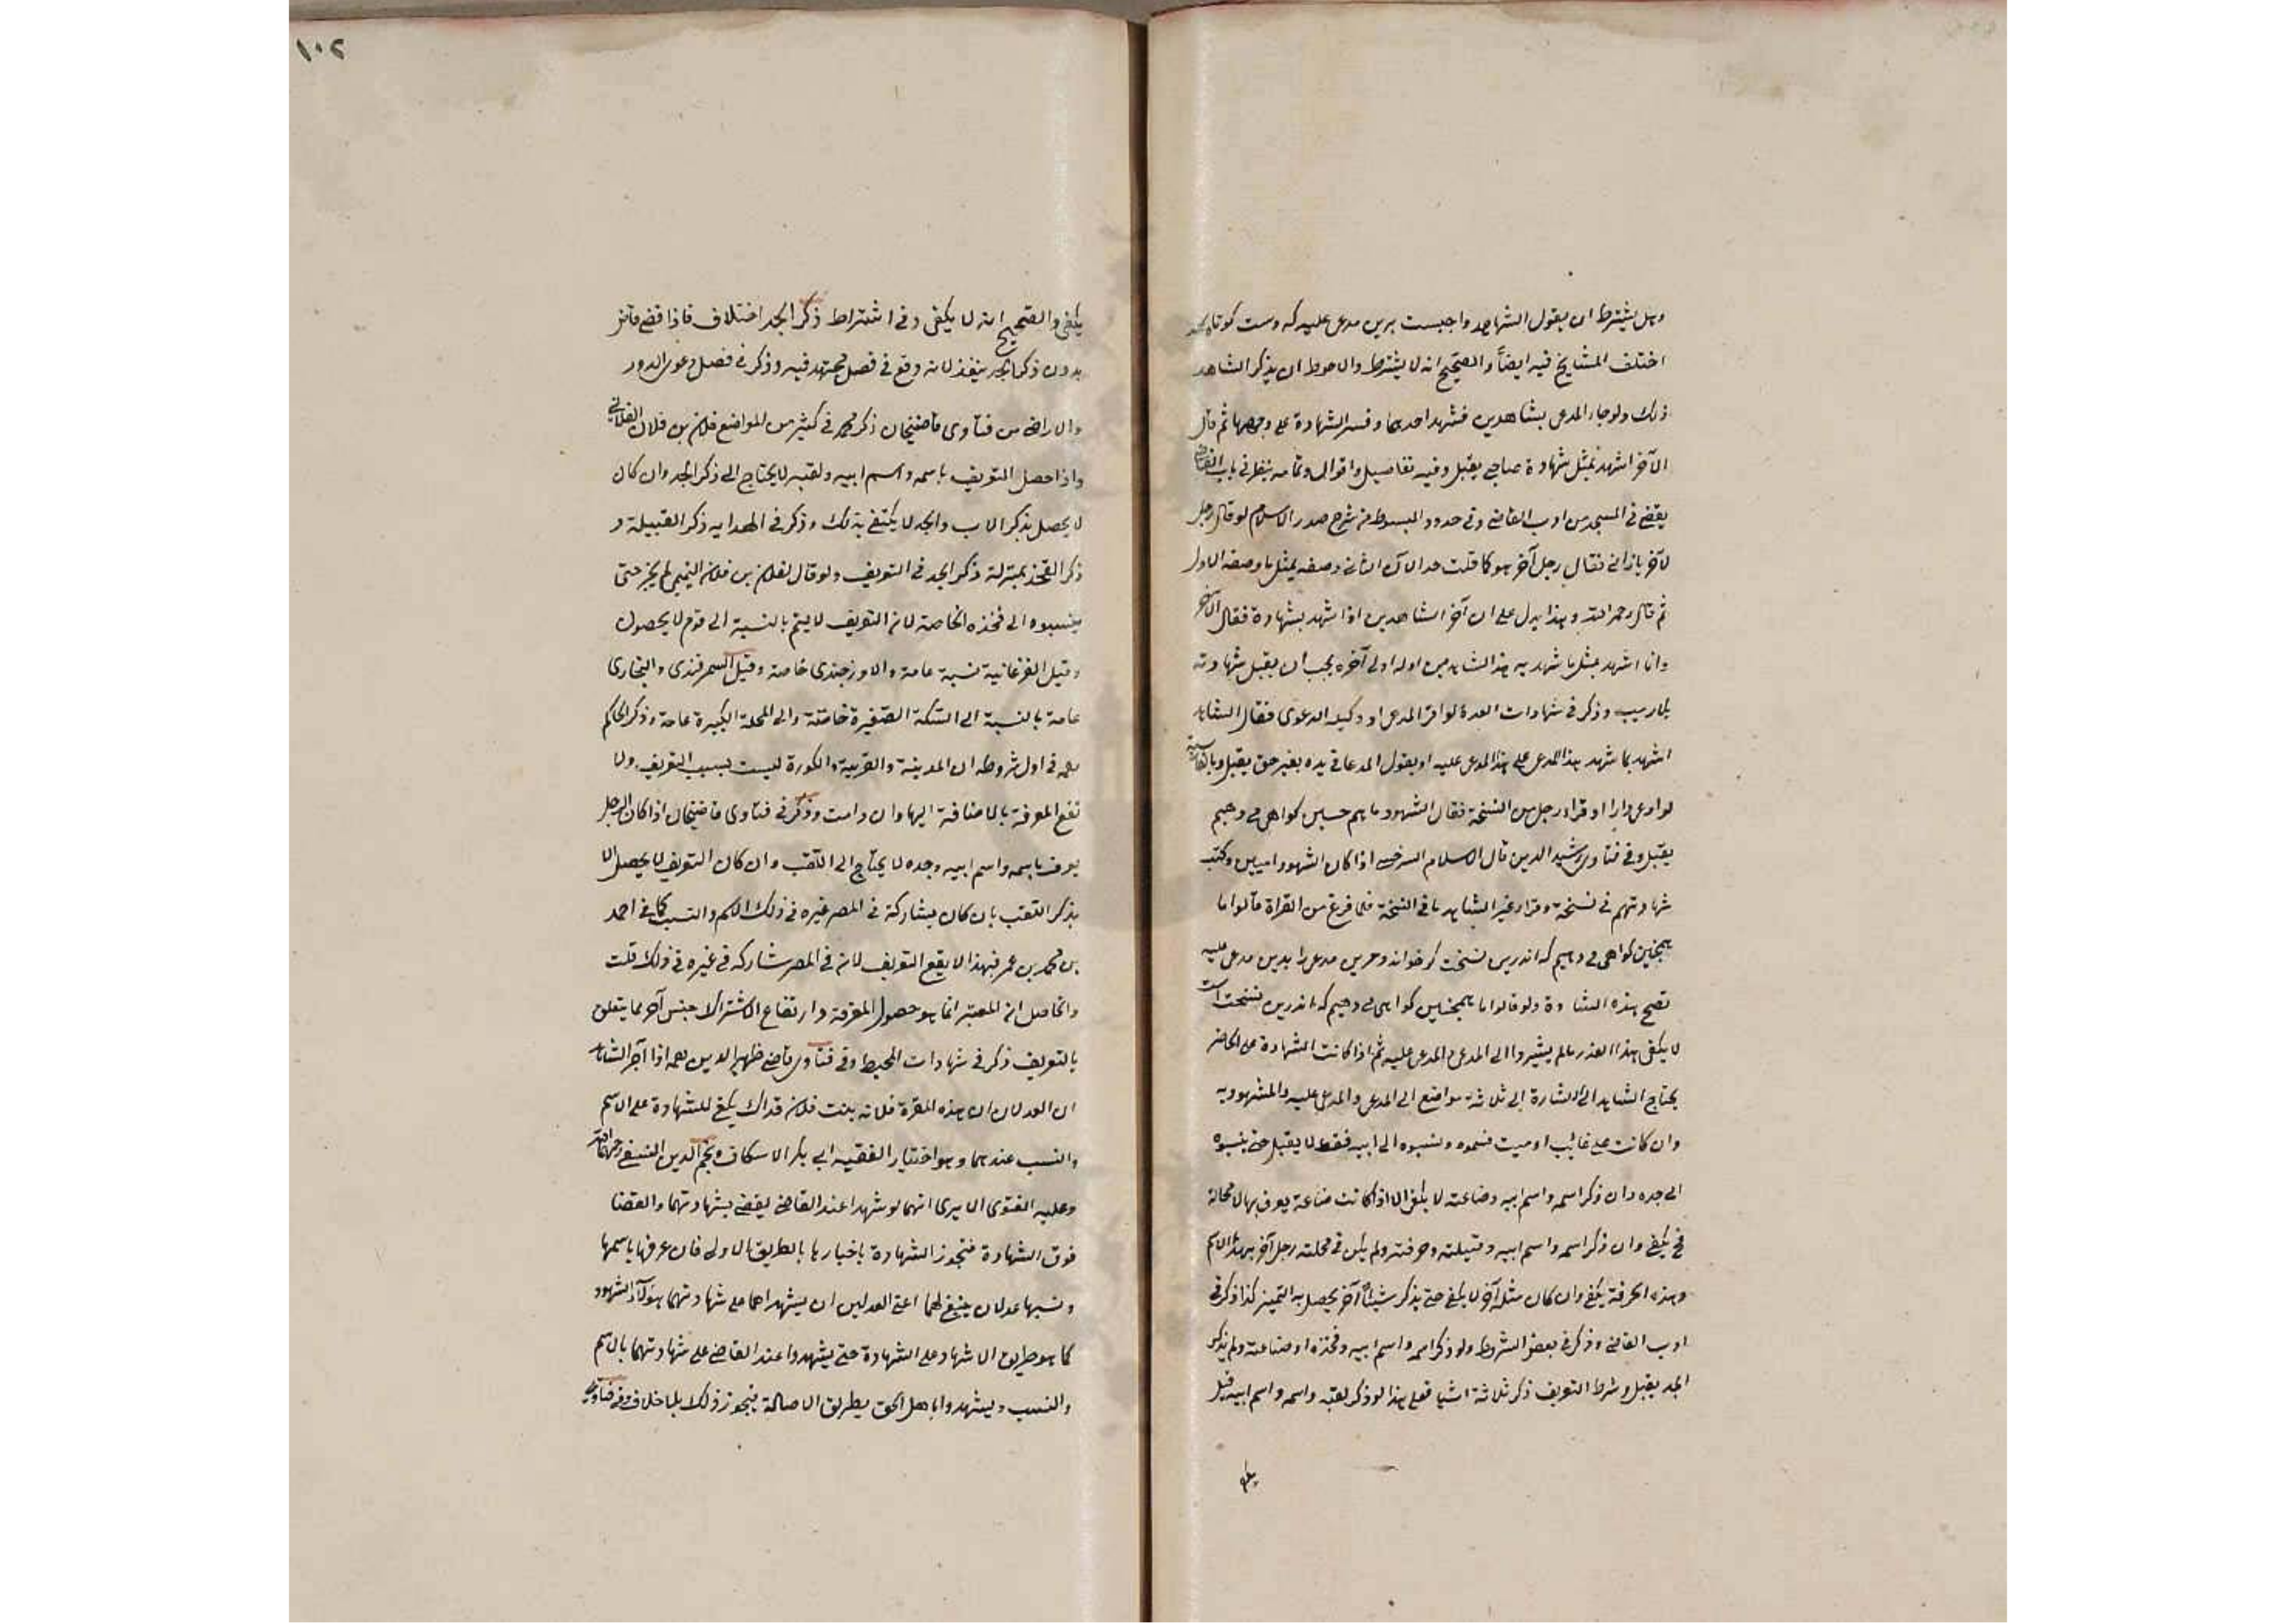 وهل يشترط ان يقول الشاهد واجبست برين مدعى عليه كه دست كوتاه كند
اختلف المشايخ فيه ايضاً والصحيح انه لا يشترط والاحوط ان يذكر الشاهد
ذلك ولو جاء المدعى بشاهدين فشهد احدهما وفسر الشهادة على وجهها ثم قال
الآخر اشهد بمثل شهادة صاحبى يقبل وفيه تفاصيل واقوال وتمامه ينظر فى باب القاضى
يقضى فى المسجد من ادب القاضى وفى حدود المبسوط من شرح صدر الاسلام لو قال رجل
لآخر يا زانى فقال رجل آخر هو كما قلت حد الآن الثانى وصفه بمثل ما وصفه الاول
ثم قال رحمه الله وهذا يدل على ان آخر الشاهدين اذا شهد بشهادة فقال الآخر
وانا اشهد بمثل ما شهد به هذا الشاهد من اوله الى آخره يجب ان يقبل شهادته
بلا ريب وذكر فى شهادات العدة لو اقر المدعى او وكيله الدعوى فقال الشاهد
اشهد بما شهد هذا المدعى على هذا المدعى عليه او يقول المدعا فى يده بغير حق يقبل وبالفارسية
لو ادعى دارا او قراء رجل من النسخة فقال الشهود ما هم حسين كواهى مى دهيم
يقبل وفى فتاوى رشيد الدين قال الاسلام السرخسى اذا كان الشهود اميين وكتب
شهادتهم فى نسخة وقراء غير الشاهد ما فى النسخة فلما فرغ من القراة قالوا ما
همچنين كواهى مى دهيم كه اندرين نسخت كر خوانه وحرين مدعى را بدين مدعى عليه
تصح هذه الشادة ولو قالوا ما همچنين كواهى مى دهيم كه اندرين نسخت است
لا يكفى هذا القدر ما لم يشيروا الى المدعى والمدعى عليه ثم اذا كانت الشهادة على الحاضر
يحتاج الشاهد الى الاشارة الى ثلاثة مواضع الى المدعى والمدعى عليه والمشهود به
وان كانت على غائب او ميت فسموه ونسبوه الى ابيه فقط لا يقبل حتى ينسبوه
الى جده وان ذكر اسمه واسم ابيه وصناعته لا يكفى الا اذا كانت صناعة يعرف بها لا محالة
فح يكفى وان ذكر اسمه واسم ابيه وقبيلته وحرفته ولم يكن فى محلته رجل آخر بهذا الاسم
وبهذه الحرفة يكفى وان كان مثله آخر لا يكفى حتى يذكر شيئاً آخر يحصل به التميز كذا ذكر فى
ادب القاضى وذكر فى بعض الشروط ولو ذكر اسمه واسم ابيه وفخذه او صناعته ولم يذكر
الجد يقبل وشرط التعريف ذكر ثلاثة اشيا فعلى هذا لو ذكر لقبه واسمه واسم ابيه قيل
١٠٢
يكفى والصحيح انه لا يكفى وفى اشتراط ذكر الجد اختلاف فاذا قضى قاض
بدون ذكر الجد ينفذ لانه وقع فى فصل مجتهد فيه وذكر فى فصل دعوى الدور
والاراضى من فتاوى قاضيخان ذكر محمد فى كثير من المواضع فلان بن فلان الفلانى
واذا حصل التعريف باسمه واسم ابيه ولقبه لا يحتاج الى ذكر الجد وان كان
لا يحصل بذكر الاب والجد لا يكتفى بذلك وذكر فى الهدايه ذكر القبيلة و
ذكر الفخذ بمنزلة ذكر الجد فى التعريف ولو قال لفلان بن فلان التيمى لم يجز حتى
ينسبوه الى فخذه الخاصة لان التعريف لا يتم بالنسبة الى قوم لا يحصون
وقيل الفرغانية نسبة عامة والاوزجندى خاصة وقيل السمرقندى والبخارى
عامة بالنسبة الى السكة الصغيرة خاصة والى المحلة الكبيرة عامة وذكر الحاكم
رحمه فى اول شروطه ان المدينة والقرية والكورة ليست بسبب التعريف ولا
تقع المعرفة بالاضافة اليها وان دامت وذكر فى فتاوى قاضيخان اذا كان الرجل
يعرف باسمه واسم ابيه وجده لا يحتاج الى اللقب وان كان التعريف لا يحصل الا
بذكر اللقب بان كان يشاركه فى المصر غيره فى ذلك الاسم والنسب كما فى احمد
بن محمد بن عمر فبهذا لا يقع التعريف لان فى المصر شاركه فى غيره فى ذلك قلت
والحاصل ان المعتبر انما هو حصول المعرفة وارتفاع الاشتراك جنس آخر مما يتعلق
بالتعريف ذكر فى شهادات المحيط وفى فتاوى قاضى ظهير الدين رحمه اذا آخر الشاهد
ان العدلان ان هذه المقرة فلانة بنت فلان فذاك يكفى للشهادة على الاسم
والنسب عندهما وهو اختيار الفقيه ابى بكر الاسكاف ونجم الدين النسفى رحمهما الله
وعليه الفتوى الا يرى انهما لو شهدا عند القاضى يقضى بشهادتهما والقضا
فوق الشهادة فتجوز الشهادة باخبارهما بالطريق الاولى فان عرفها باسمها
ونسبها عدلان ينبغى لهما اعنى العدلين ان يشهدا هما على شهادتهما هؤلاء الشهود
كما هو طريق الاشهاد على الشهادة حتى يشهدوا عند القاضى على شهادتهما بالاسم
والنسب ويشهدوا باهل الحق بطريق الاصالة فيجوز ذلك بلا خلاف وفى فتاوى